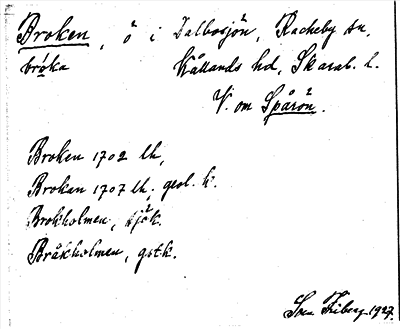 Broken, ö i Dalbosjön, Racheby sn,
bròka Kållands hd, Skarab. l.
V. om Spårön.
Broken 1702 lk,
Brokan 1707 lk, geol. k.
Brokholmen, sjök.
Bråkholmen, gstk.
Sven Friberg 1927.